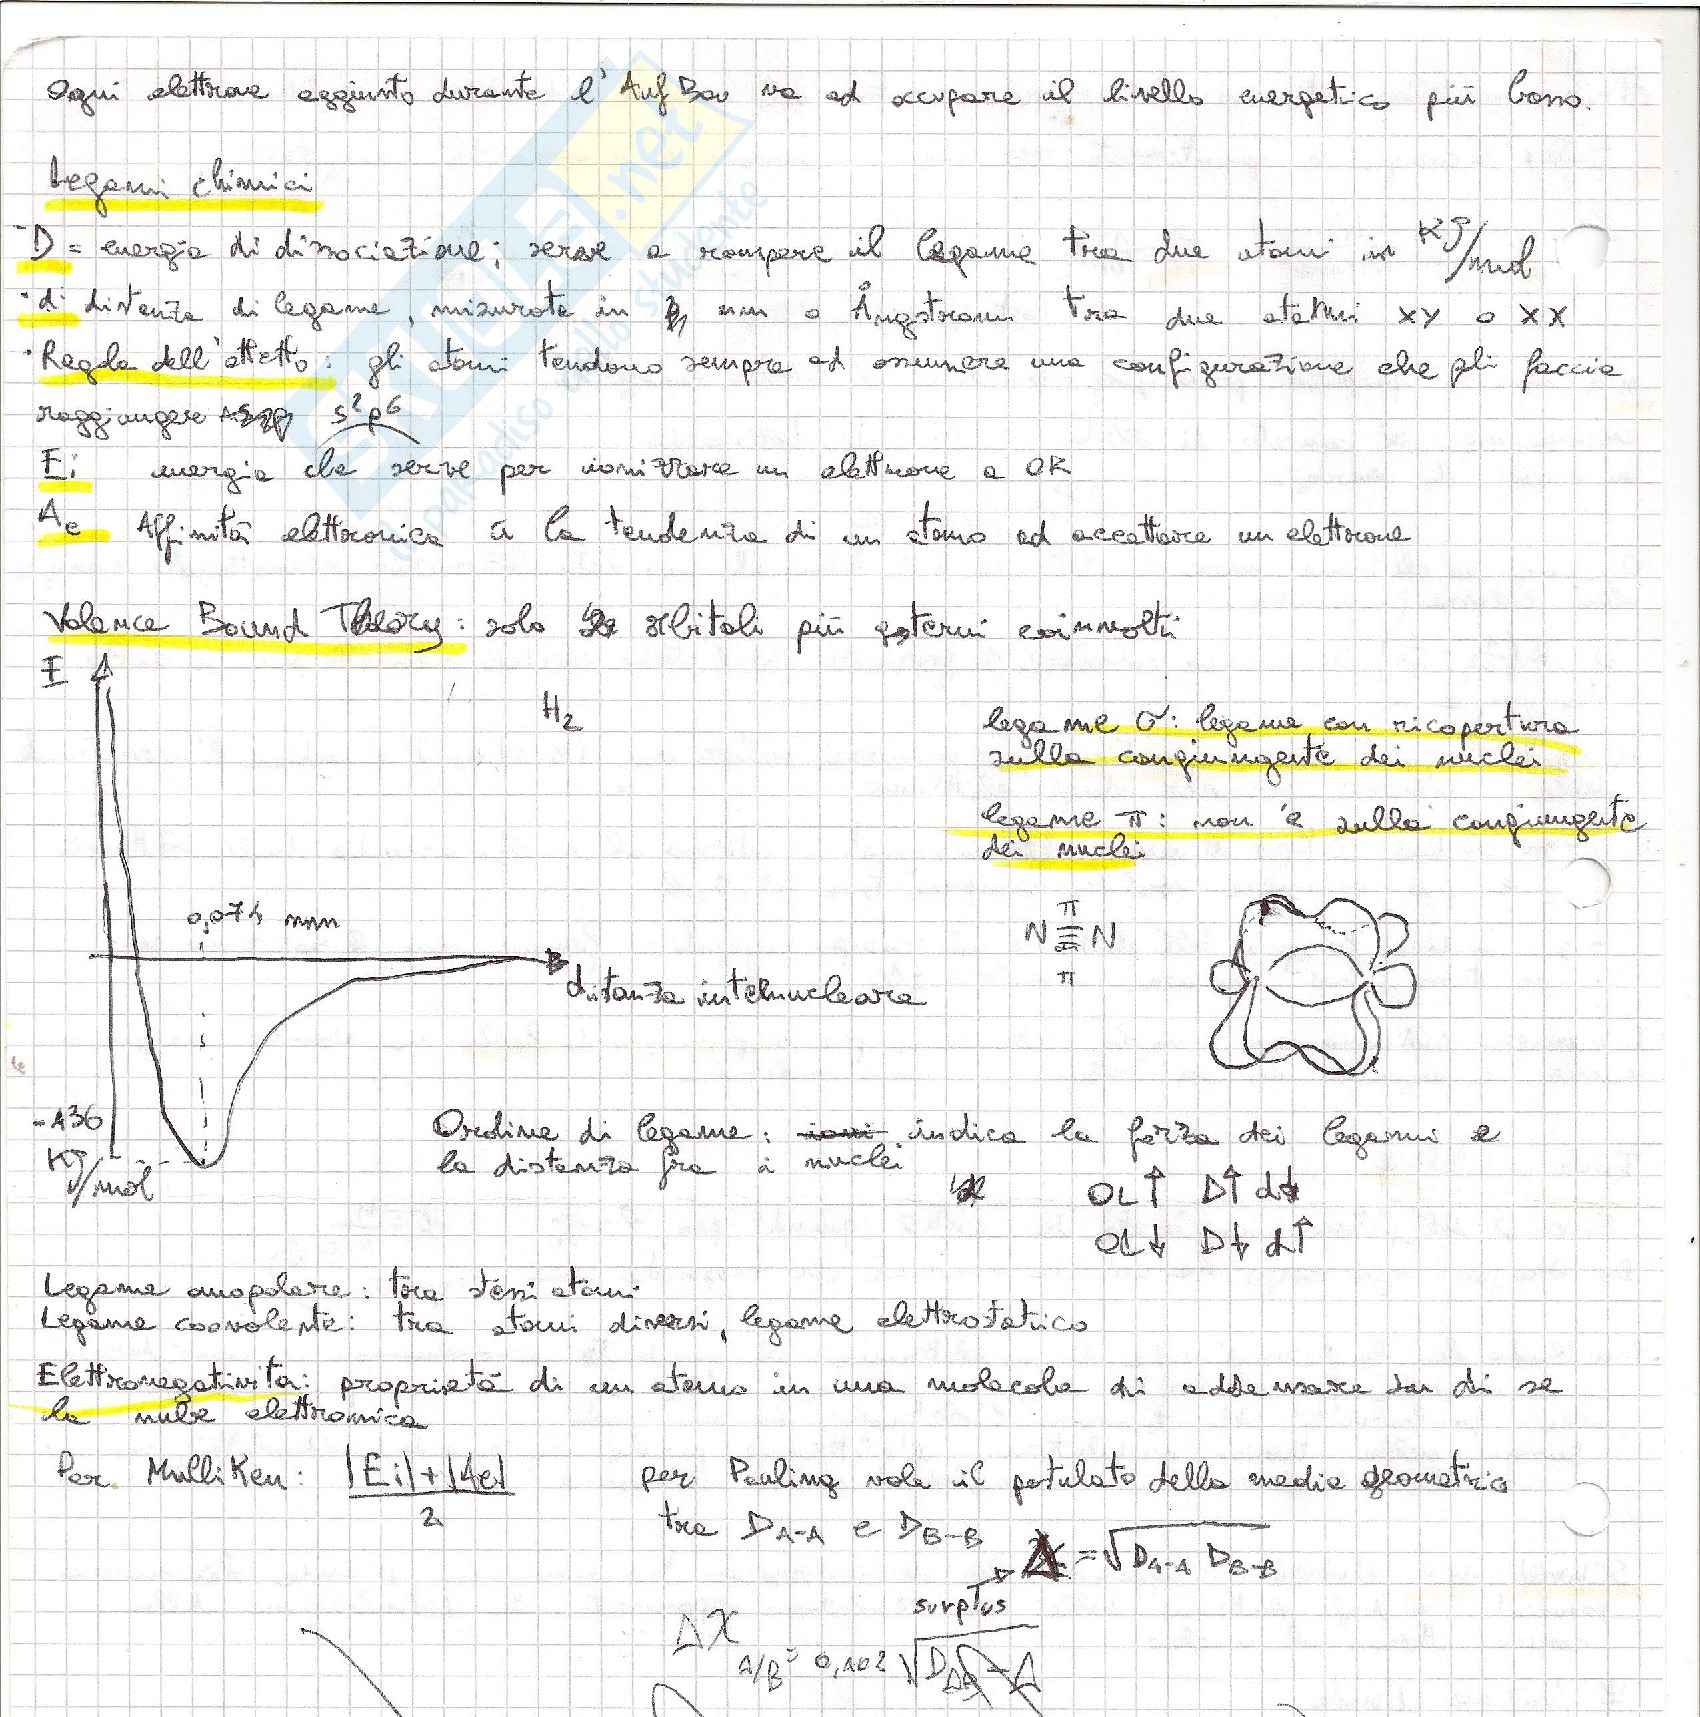 Ogni elettrone aggiunto durante l'AufBau va ad occupare il livello energetico più basso.
Legami chimici
- D = energia di dissociazione; serve a rompere il legame tra due atomi in KJ/mol
- di distanza di legame, misurata in nm o Ångstrom tra due atomi XY o XX
· Regola dell'ottetto: gli atomi tendono sempre ad assumere una configurazione che gli faccia
raggiungere s²p⁶
Ei energia che serve per ionizzare un elettrone a 0K
Ae Affinità elettronica è la tendenza di un atomo ad accettare un elettrone
Valence Bound Theory: solo orbitali più esterni coinvolti
E
H₂
legame σ: legame con ricopertura
sulla congiungente dei nuclei
legame π: non è sulla congiungente
dei nuclei
0,074 nm
π
N≡N
π
distanza internucleare
-436
KJ/mol
Ordine di legame: indica la forza dei legami e
la distanza fra i nuclei
OL↑ D↑ d↓
OL↓ D↓ d↑
Legame omopolare: tra stessi atomi
Legame coovalente: tra atomi diversi, legame elettrostatico
Elettronegatività: proprietà di un atomo in una molecola di addensare su di se
la nube elettronica
Per Mulliken: |Ei|+|Ae| / 2
per Pauling vale il postulato della media geometrica
tra D_A-A e D_B-B
Δ = √D_A-A D_B-B
surplus
ΔX A/B = 0,102 √D_AB - Δ
SKUOLA.net
paradiso dello studente